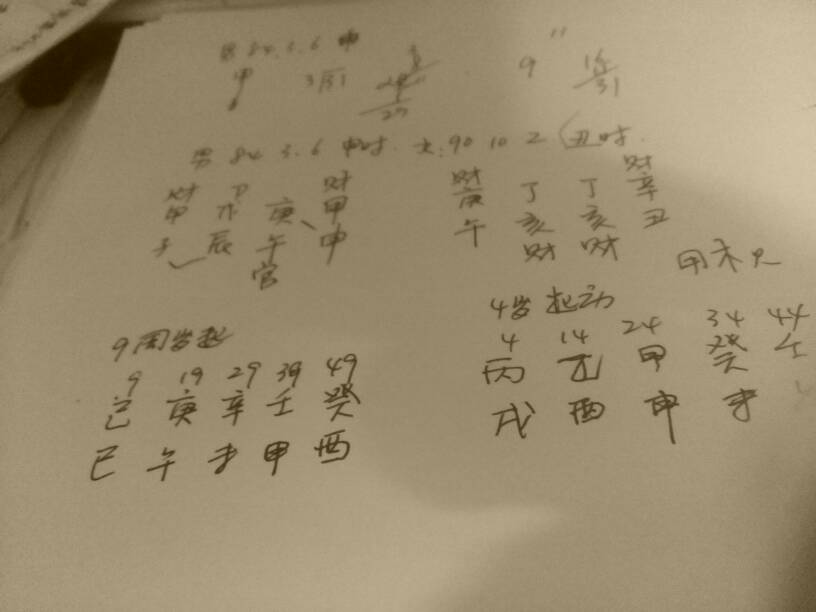 男 84.3.6 申
甲 3 31
9 " 15/31
男 84 3.6 申时. 女:90 10 2 (丑时.
财 财 财 财
甲 戊 庚 甲 庚 丁 丁 辛
子 辰 午 申 午 亥 亥 丑
官 财 财
9周岁起 4岁起动
9 19 29 39 49 4 14 24 34 44
己 庚 辛 壬 癸 丙 乙 甲 癸 壬
巳 午 未 申 酉 戌 酉 申 未